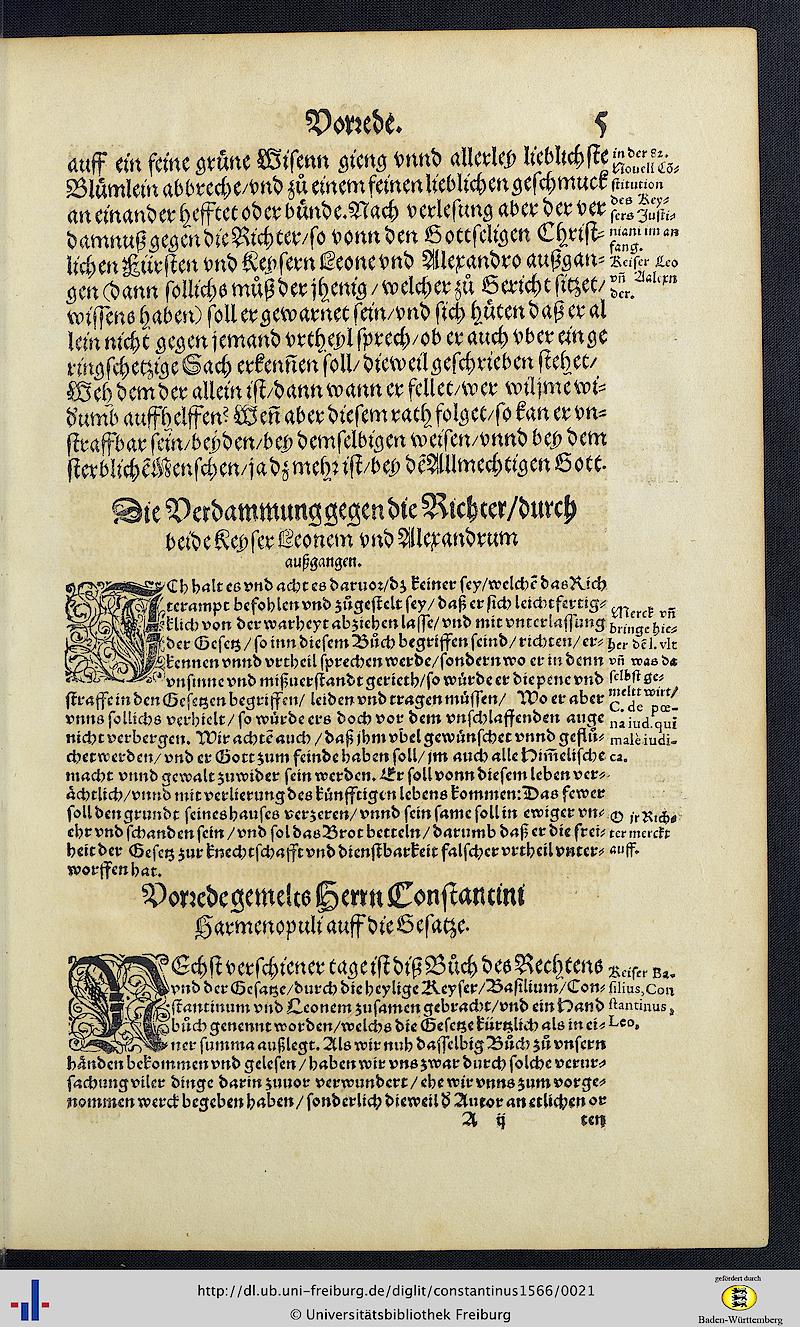 Vorrede.
5
auff ein feine grüne Wisenn gieng vnnd allerley lieblichste
Blümlein abbreche/vnd zů einem feinen lieblichen geschmuck
an einander hefftet oder bünde. Nach verlesung aber der ver
damnuß gegen die Richter/so vonn den Gottseligen Christ-
lichen Fürsten vnd Keysern Leone vnd Alexandro außgan-
gen (dann sollichs můß der jhenig/welcher zů Gericht sitzet/
wissens haben) soll er gewarnet sein/vnd sich hüten daß er al
lein nicht gegen jemand vrtheyl sprech/ob er auch vber ein ge
ringschetzige Sach erkeñen soll/dieweil geschrieben stehet/
Weh dem der allein ist/dann wann er fellet/wer wil jme wi-
dumb auffhelffen? Weñ aber diesem rath folget/so kan er vn-
straffbar sein/beyden/bey demselbigen weisen/vnnd bey dem
sterblichẽ Menschen/ja dz mehr ist/bey dẽ Allmechtigen Gott.
in der 82.
Nouell Cõ-
stitution
des Key-
sers Justi-
niani im an
fang.
Keiser Leo
vñ Aalexn
der.
Die Verdammung gegen die Richter/durch
beide Keyser Leonem vnd Alexandrum
außgangen.
ICh halt es vnd acht es daruor/dz keiner sey/welchẽ das Rich
terampt befohlen vnd zůgestelt sey/daß er sich leichtfertig-
klich von der warheyt abziehen lasse/vnd mit vnterlassung
der Gesetz/so inn diesem Bůch begriffen seind/richten/er-
kennen vnnd vrtheil sprechen werde/sondern wo er in denn
vnsinne vnd mißuerstandt gerieth/so würde er die pene vnd
straffe in den Gesetzen begriffen/leiden vnd tragen müssen/ Wo er aber
vnns sollichs verhielt/so würde ers doch vor dem vnschlaffenden auge
nicht verbergen. Wir achtẽ auch/daß jhm vbel gewünschet vnnd geflů-
chet werden/vnd er Gott zum feinde haben soll/jm auch alle Him̃elische
macht vnnd gewalt zuwider sein werden. Er soll vonn diesem leben ver-
ächtlich/vnnd mit verlierung des künfftigen lebens kommen: Das fewer
soll den grundt seines hauses verzeren/vnnd sein same soll in ewiger vn-
ehr vnd schanden sein/vnd sol das Brot betteln/darumb daß er die frei-
heit der Gesetz zur knechtschafft vnd dienstbarkeit falscher vrtheil vnter-
worffen hat.
Merck vñ
bringe hie-
her dẽ l. vlt
vñ was da
selbst ge-
meltt wirt/
C. de pœ-
na iud. qui
malè iudi-
ca.
O jr Rich-
ter merckt
auff.
Vorrede gemelts Herrn Constantini
Harmenopuli auff die Gesatze.
NEchst verschiener tage ist diß Bůch des Rechtens
vnd der Gesatze/durch die heylige Keyser/Basilium/Con-
stantinum vnd Leonem zusamen gebracht/vnd ein Hand
bůch genennt worden/welchs die Gesetze kürtzlich als in ei-
ner summa außlegt. Als wir nuh dasselbig Bůch zů vnsern
händen bekommen vnd gelesen/haben wir vns zwar durch solche verur-
sachung viler dinge darin zuuor verwundert/ehe wir vnns zum vorge-
nommen werck begeben haben/sonderlich dieweil d̕ Autor an etlichen or
Keiser Ba-
silius, Con
stantinus,
Leo.
A ij
ten
http://dl.ub.uni-freiburg.de/diglit/constantinus1566/0021
© Universitätsbibliothek Freiburg
gefördert durch
Baden-Württemberg